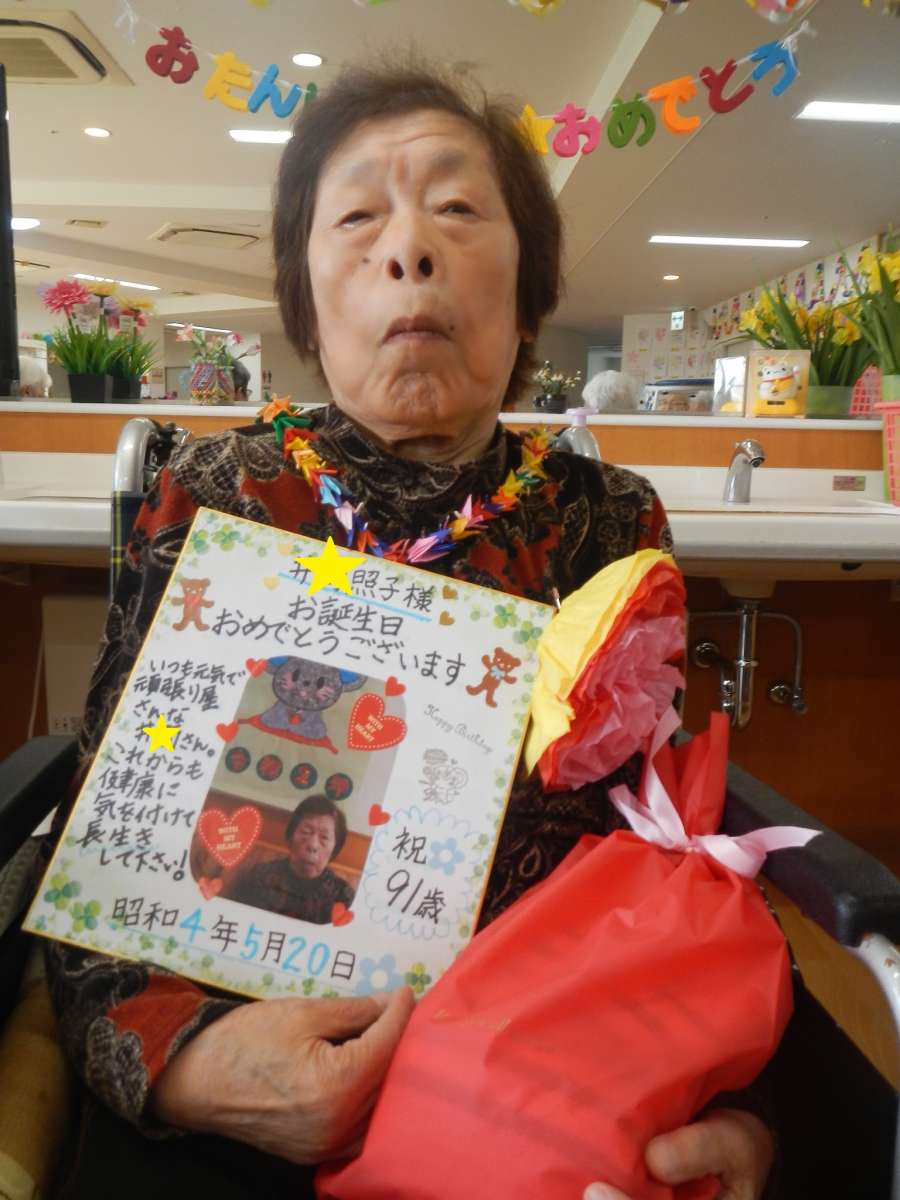 おたん
おめでとう
照子様
お誕生日
おめでとうございます
いつも元気で
頑張り屋
さんな
さん。
これからも
健康に
気を付けて
長生き
して下さい!
WITH
MY
HEART
Happy Birthday
WITH
MY
HEART
祝
91歳
昭和4年5月20日